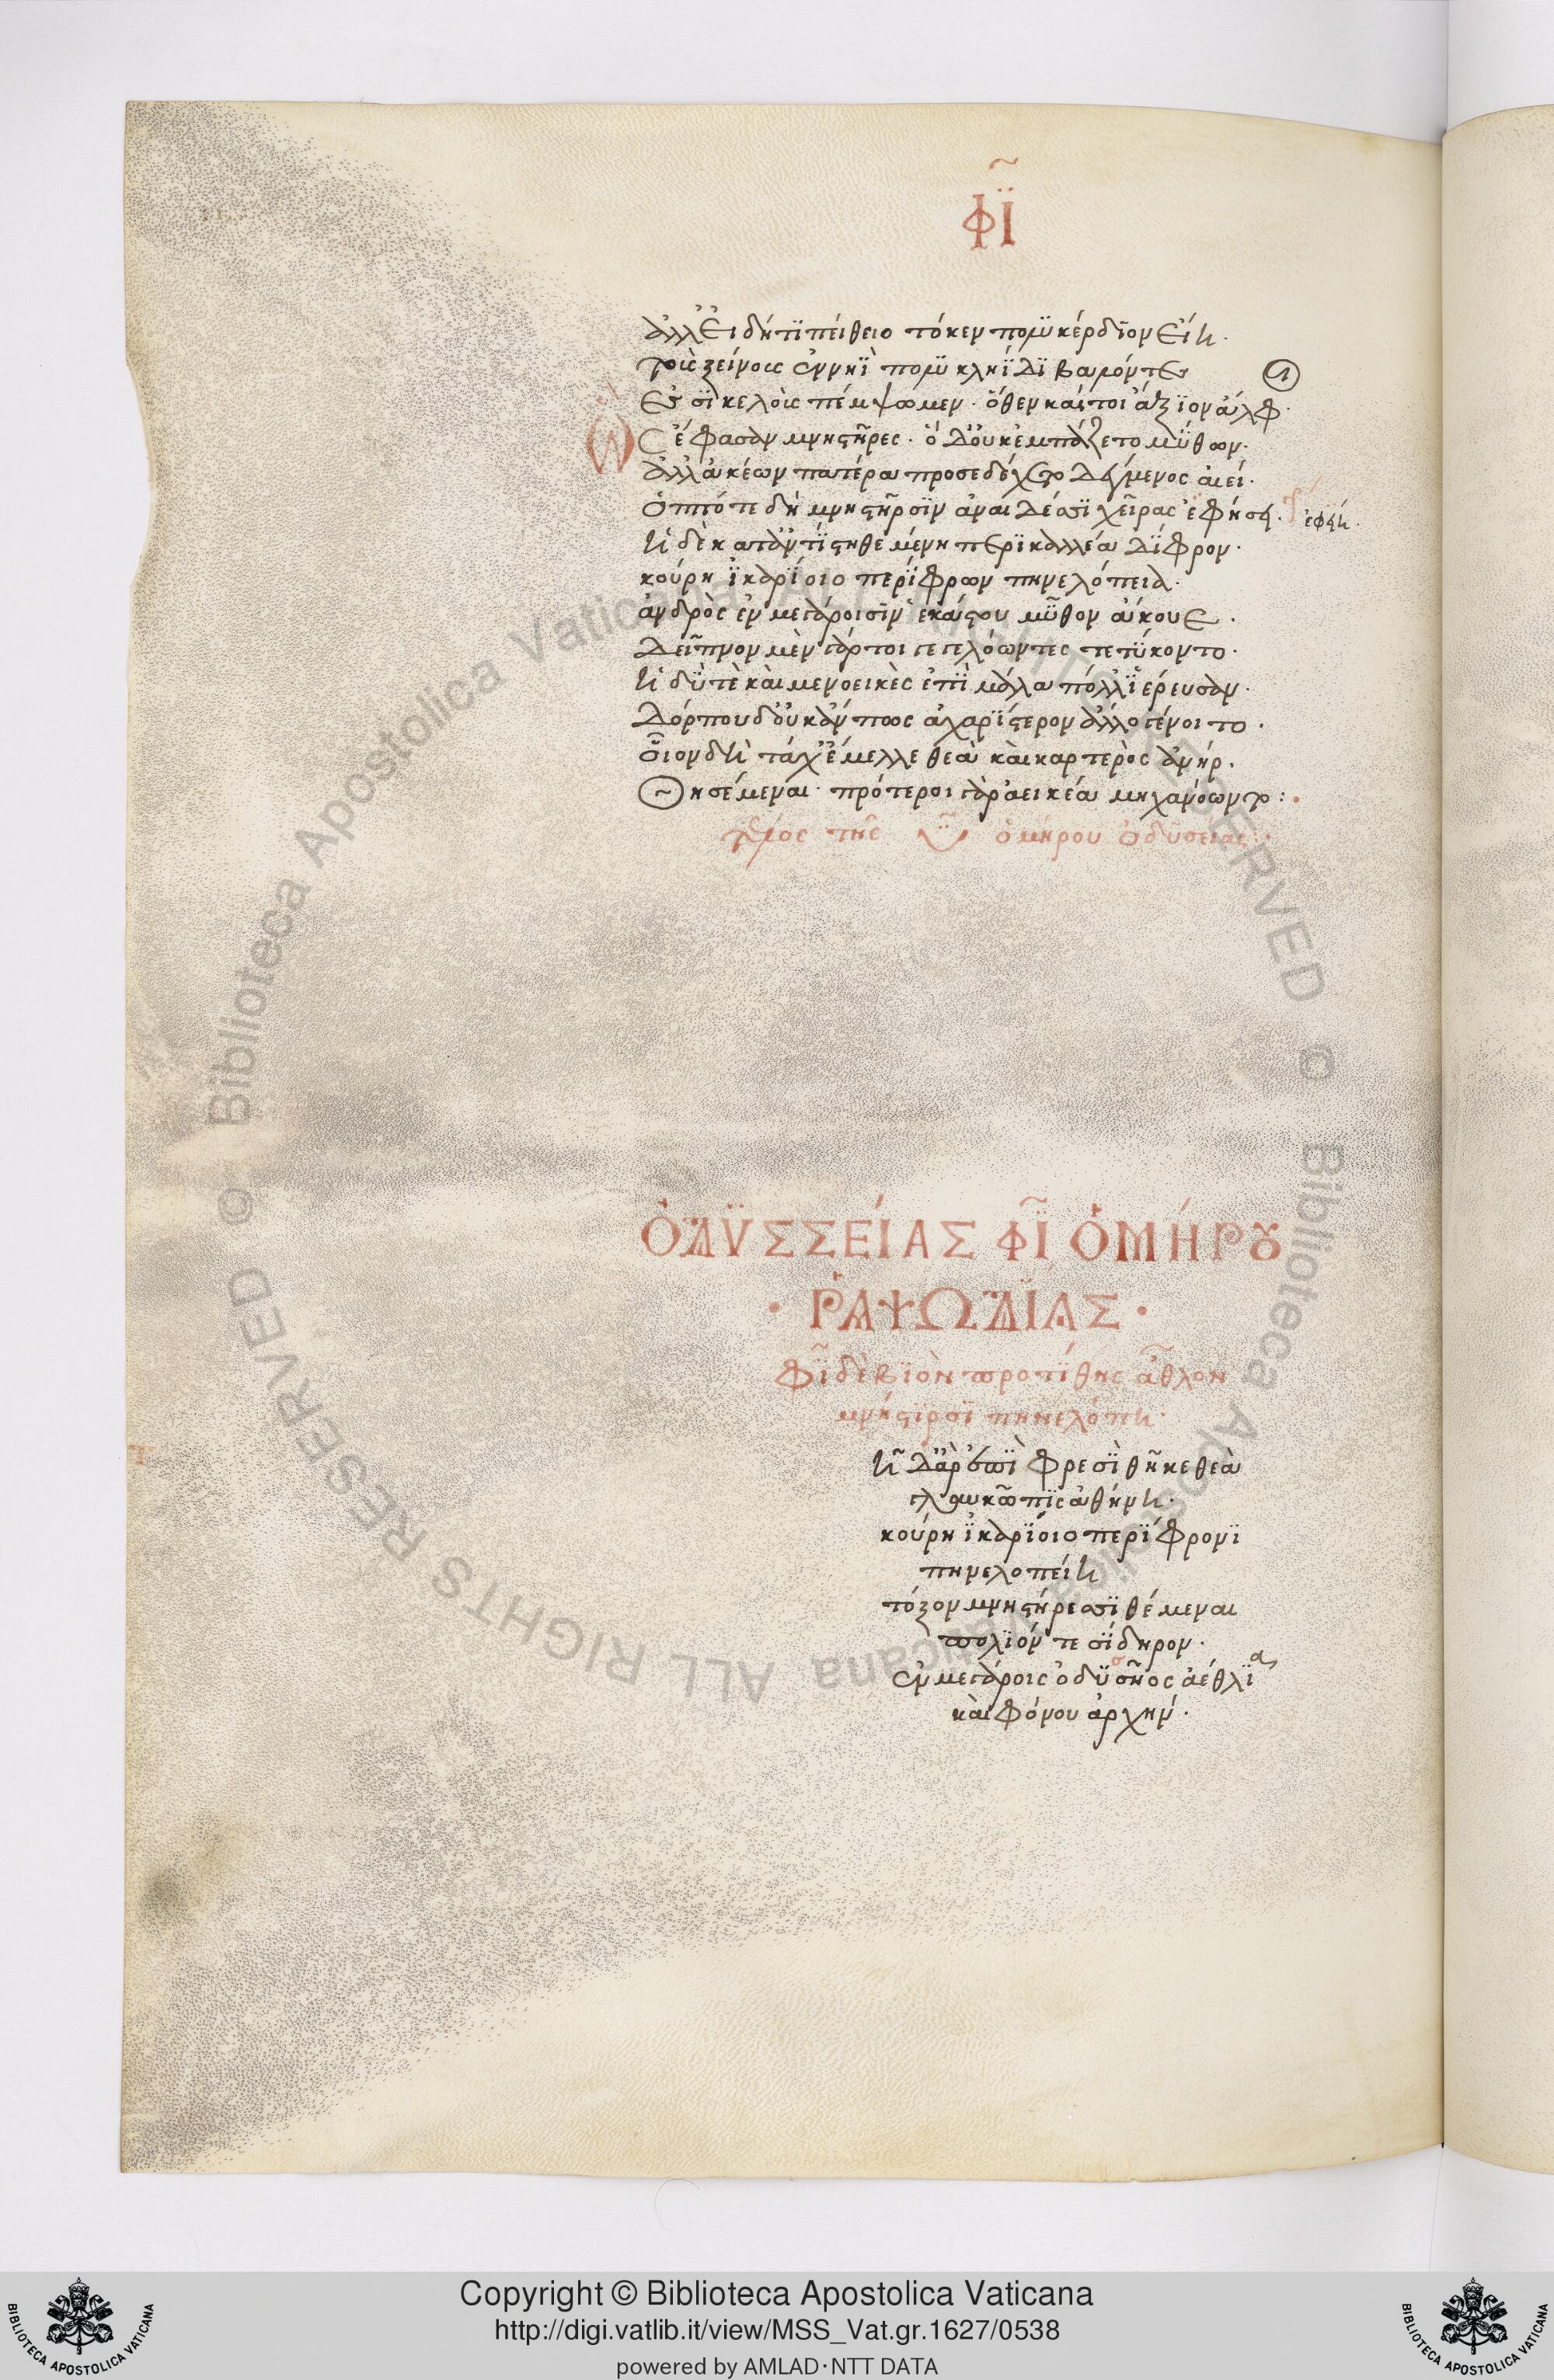 φϊ
ἀλλ' εἰ δή τϊ πείθειο τό κεν πολὺ κέρδϊον εἴη.
τοὺς ξείνους ἐν νηῒ πολϋκληΐδϊ βαλόντες
ἐς σϊκελοὺς πέμψωμεν. ὅθεν καί τοι ἄξϊον ἄλφ.
Ὣς ἔφασαν μνηστῆρες. ὁ δ' οὐκ ἐμπάζετο μΰθων.
ἀλλ' ἀκέων πατέρα προσεδέρκετο δέγμενος ἀιεί.
ὁππότε δὴ μνηστῆρσϊν ἀναιδέσϊ χεῖρας ἐφήσει. ἐφείη.
ἡ δὲ κατάντϊ στηθεμένη περϊκαλλέα δΐφρον.
κούρη ϊκαρΐοιο περΐφρων πηνελόπεια.
ἀνδρὸς ἐν μεγάροισϊν ἑκάστου μῦθον ἄκουε.
δεῖπνον μὲν γάρ τοι γε γελόωντες τετΰκοντο.
ἡδΰ τε καὶ μενοεικὲς ἐπῒ μάλα πόλλ' ϊέρευσαν.
δόρπου δ' οὐκ ἄν πως ἀχαρΐστερον ἄλλο γένοιτο.
οἷον δὴ τάχ' ἔμελλε θεὰ καὶ καρτερὸς ἀνήρ.
Θησέμεναι. πρότεροι γὰρ ἀεικέα μηχανόωντο:
τέλος της ϋ ὁμήρου ὀδϋσείας:
ὈΔΫΣΣΕΊΑΣ ΦΪ ὉΜΉΡΟΥ
· ῬΑΨΩΔΪ́ΑΣ ·
Φϊ δὲ βϊὸν προτΐθης ἆθλον
μνήστϊρσϊ πηνελόπη.
ἡ δ' ἄρ' ἐπῒ φρεσῒ θῆκε θεὰ
γλαυκῶπϊς ἀθήνη.
κούρη ϊκαρΐοιο περΐφρονϊ
πηνελοπείη
τόξον μνηστήρεσσϊ θέμεναι
πολϊόν τε σΐδηρον.
ἐν μεγάροις ὀδϋσῆος ἀέθλϊα
καὶ φόνου ἀρχήν.
Copyright © Biblioteca Apostolica Vaticana
http://digi.vatlib.it/view/MSS_Vat.gr.1627/0538
powered by AMLAD·NTT DATA
BIBLIOTECA APOSTOLICA VATICANA
BIBLIOTECA APOSTOLICA VATICANA
© Biblioteca Apostolica Vaticana ALL RIGHTS RESERVED © Biblioteca Apostolica Vaticana ALL RIGHTS RESERVED